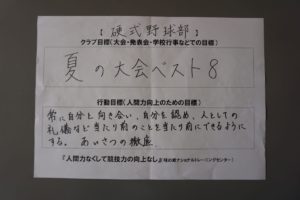 硬式野球部
クラブ目標(大会・発表会・学校行事などでの目標)
夏の大会ベスト8
行動目標(人間力向上のための目標)
常に自分と向き合い、自分を認め、人としての
礼儀など当たり前のことを当たり前にできるように
する。 あいさつの徹底
『人間力なくして競技力の向上なし』味の素ナショナルトレーニングセンター)